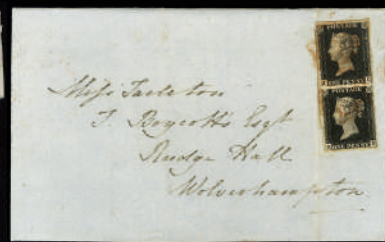 POSTAGE
ONE PENNY
POSTAGE
ONE PENNY
Miss Tarleton
T. Boycott's Esqr
Rudge Hall
Wolverhampton